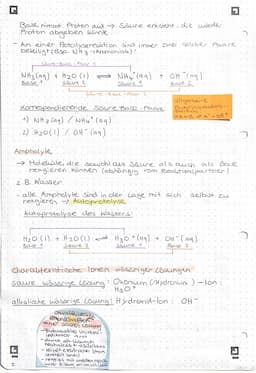 Base nimmt Proton auf → Säure entsteht, die wieder
Proton abgeben könnte
- An einer Protolysereaktion sind immer zwei solcher Paare
beteiligt (Bsp. NH3 (Ammoniak):
Säure-Base-Paar 1
NH3(aq) + H2O(l) ⇌ NH4+(aq) + OH-(aq)
Base 1 Säure 2 Säure 1 Base 2
Säure-Base-Paar 2
Korrespondierende Säure Base-Paare
1) NH3(aq) / NH4+(aq)
2) H2O(l) / OH-(aq)
Ampholyte
→ Moleküle, die sowohl als Säure als auch als Base
reagieren können (abhängig vom Reaktionspartner)
z.B. Wasser
- alle Ampholyte sind in der Lage mit sich selbst zu
reagieren → Autoprotolyse
Autoprotolyse des Wassers:
H2O(l) + H2O(l) ⇌ H3O+(aq) + OH-(aq)
Base 1 Säure 2 Säure 1 Base 2
Charakteristische Ionen wässriger Lösungen
saure wässrige Lösung: Oxonium (Hydronium)-Ion:
H3O+
alkalische wässrige Lösung: Hydroxid-Ion: OH-